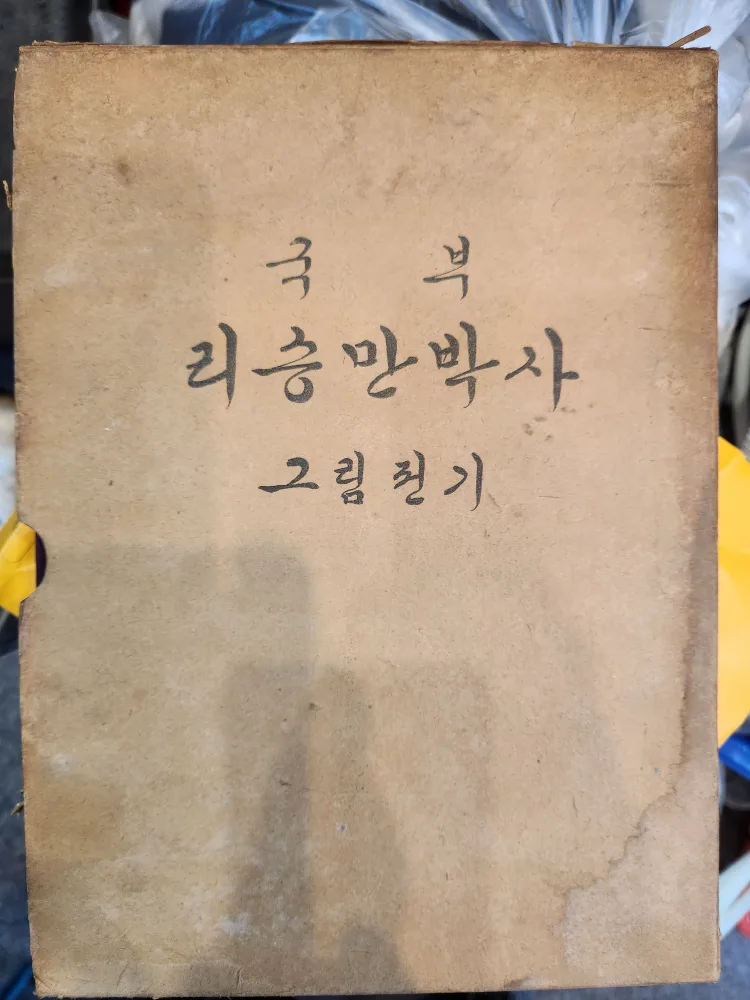 국 부
리승만박사
그림전기